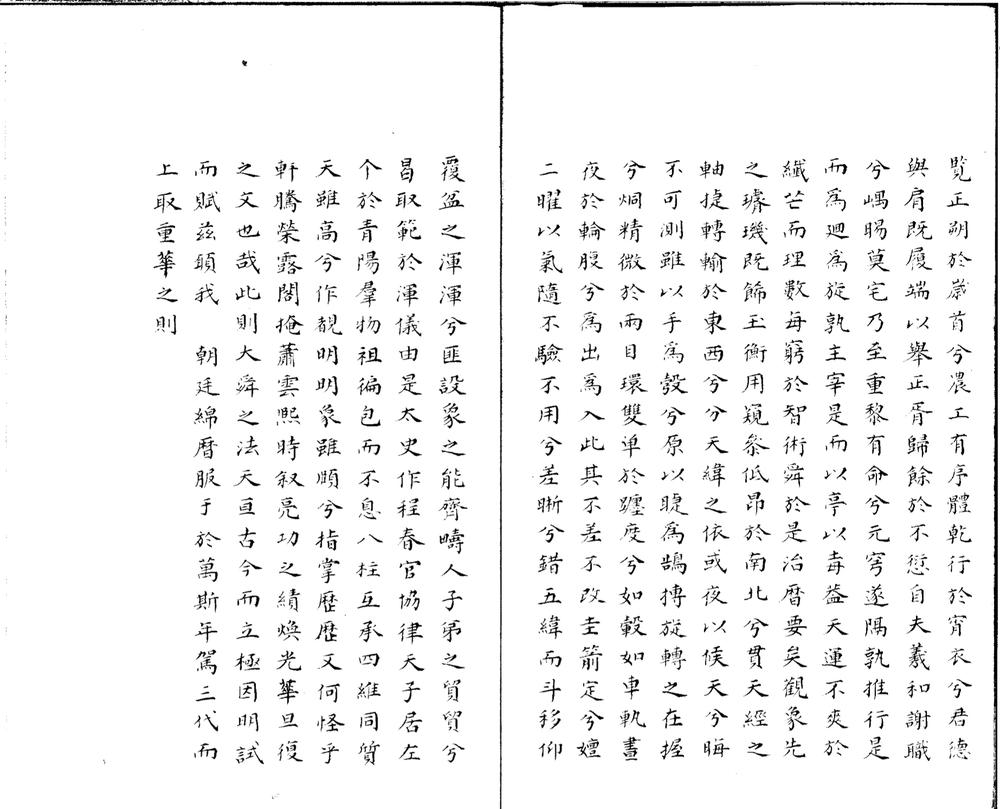 覽正朔於嵗首兮農工有序體乾行於宵衣兮君德
與肩既履端以舉正胥歸餘於不愆自夫羲和謝職
兮嵎暘莫宅乃至重黎有命兮元穹遂隔孰推行是
而爲廻爲旋孰主宰是而以亭以毒葢天運不爽於
纎芒而理數每窮於智術舜於是治曆要矣觀象先
之璿璣既餙玉衡用窺叅低昂於南北兮貫天經之
軸捷轉輸於東西兮分天緯之依或夜以候天兮晦
不可測雖以手爲彀兮原以睫爲鵠摶旋轉之在握
兮炯精微於兩目環雙单於躔度兮如轂如車軌晝
夜於輪腹兮爲出爲入此其不差不改圭箭定兮嬗
二曜以氣隨不驗不用兮差晣兮錯五緯而斗移仰
覆盆之渾渾兮匪設象之能齊疇人子弟之貿貿兮
昌取範於渾儀由是太史作程春官協律天子居左
个於青陽羣物祖徧包而不息八柱互承四維同質
天雖高兮作覩明明象雖賾兮指掌歷歷又何怪乎
軒騰榮露閣掩蕭雲熙時叙亮功之績煥光華旦復
之文也哉此則大舜之法天亘古今而立極因明試
而賦兹頓我　朝廷綿曆服于於萬斯年駕三代而
上取重華之則